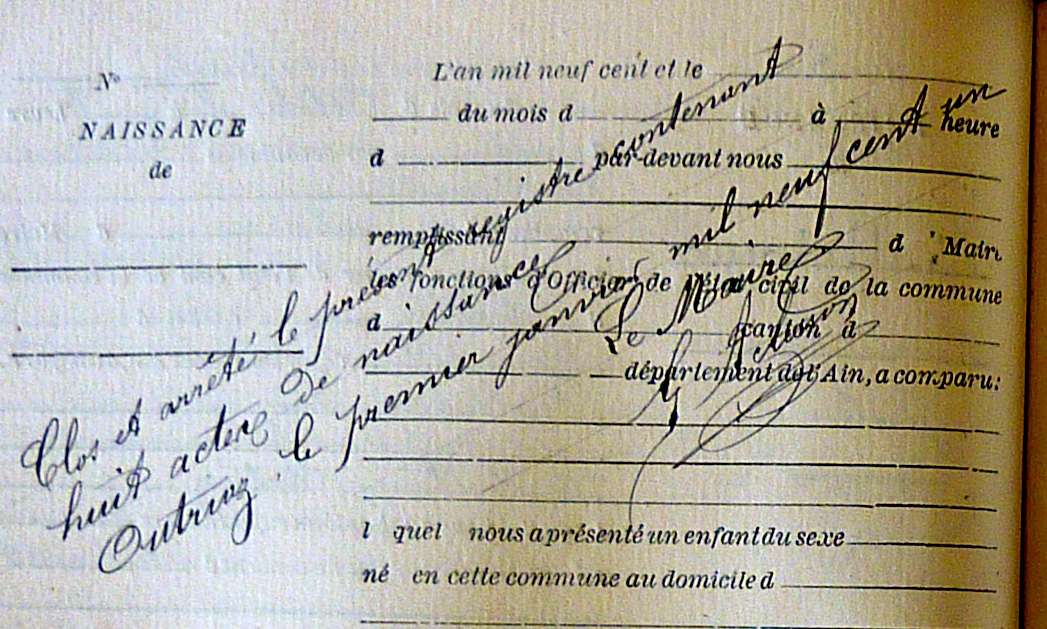 N°
NAISSANCE
de
L'an mil neuf cent et le
du mois d à heure
d par-devant nous
remplissant d Maire
les fonctions d'Officier de l'état civil de la commune
d canton d
département de l'Ain, a comparu:
l quel nous a présenté un enfant du sexe
né en cette commune au domicile d
Clos et arrêté le présent registre contenant
huit actes de naissances
Outriaz, le premier janvier mil neuf cent un
Le Maire